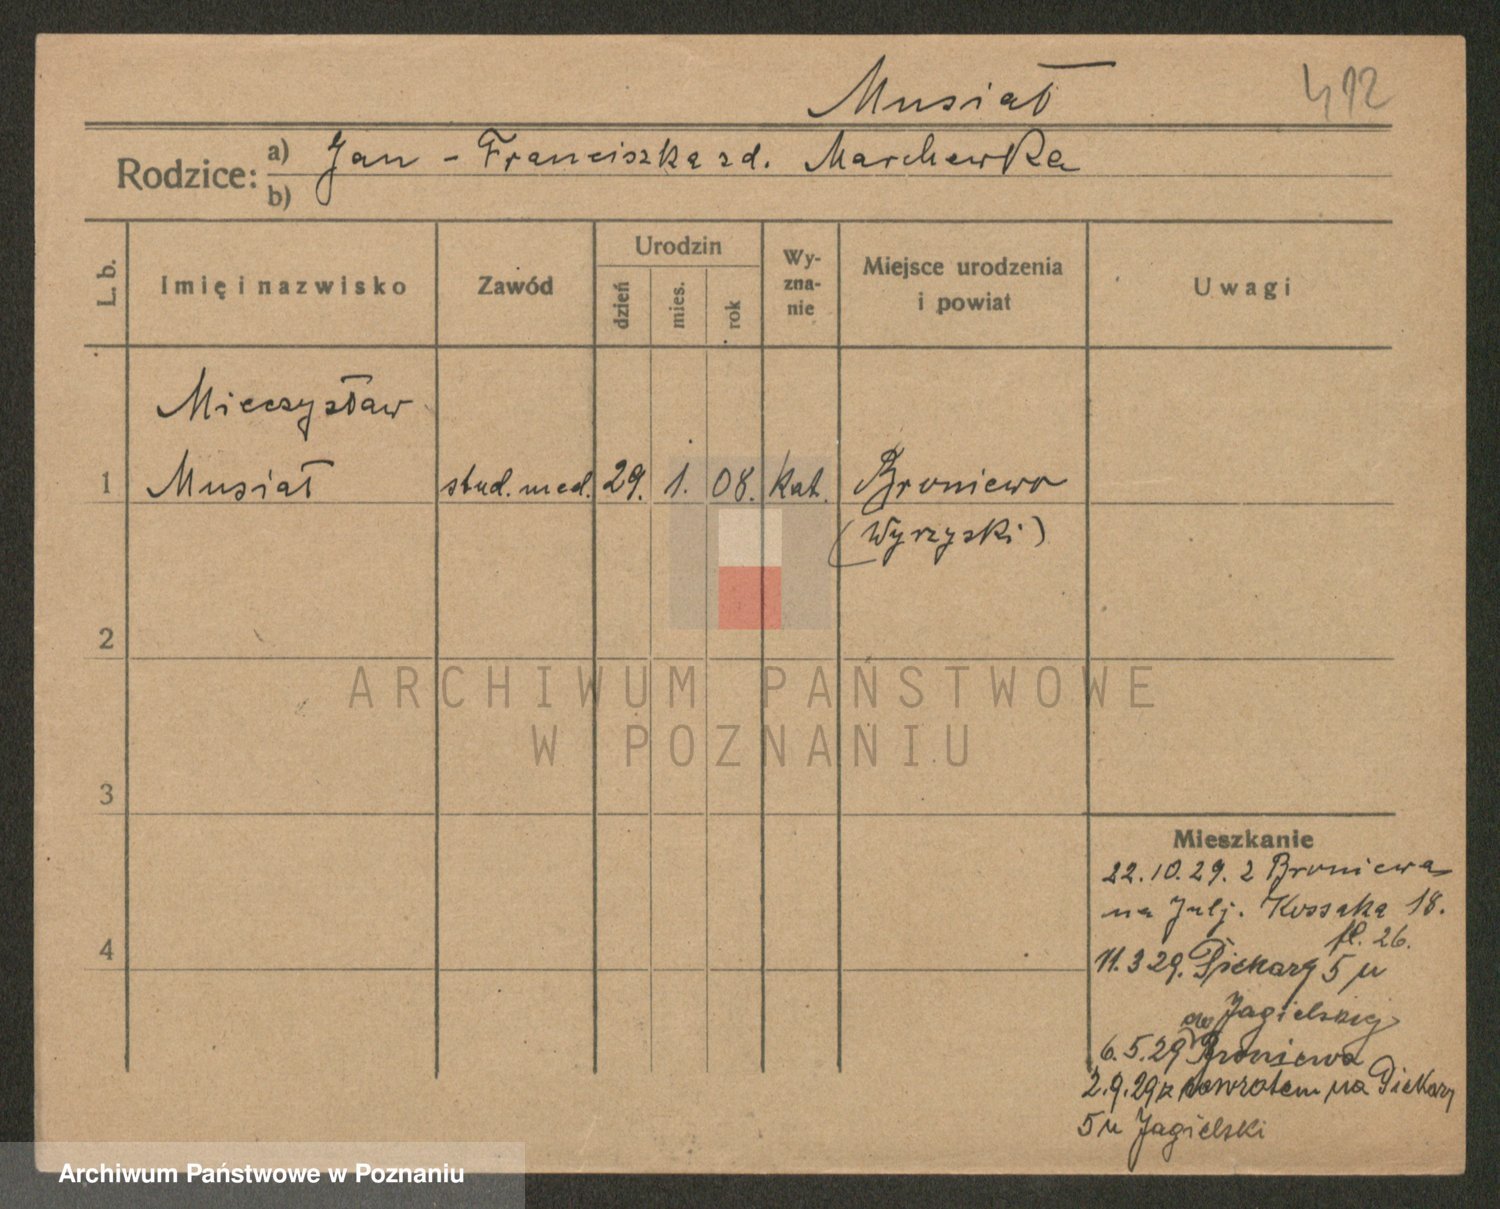 Musiał
412
Rodzice: a) Jan - Franciszka zd. Marchewka
b)
L. b.
Imię i nazwisko
Zawód
Urodzin
dzień
mies.
rok
Wy-
zna-
nie
Miejsce urodzenia
i powiat
Uwagi
Mieczysław
1 Musiał stud. med. 29. 1. 08. kat. Broniewo
(Wyrzyski)
2
3
4
Mieszkanie
22.10.29. z Broniewa
na Julj. Kossaka 18.
26.
11.3 29. Piekary 5 u
Jagielskiej
6.5.29 do Broniewa
2.9.29 z powrotem na Piekary
5 u Jagielski
ARCHIWUM PAŃSTWOWE
W POZNANIU
Archiwum Państwowe w Poznaniu